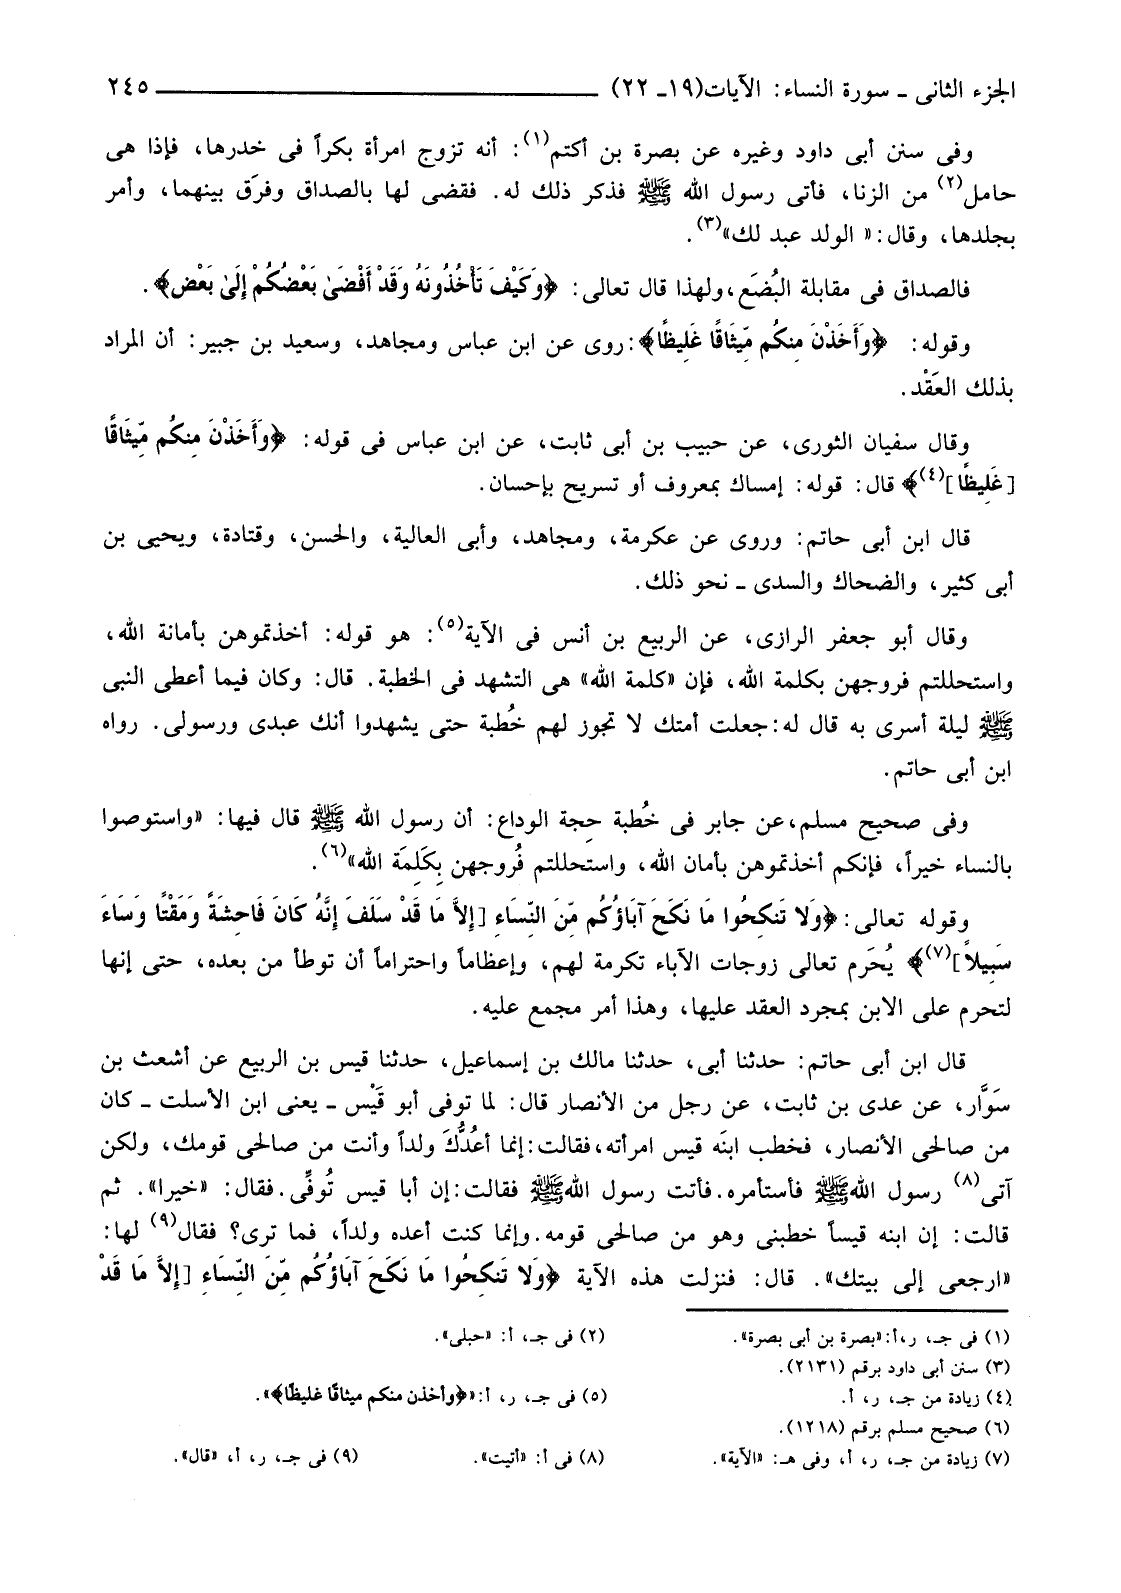 الجزء الثانى ـ سورة النساء: الآيات(١٩ـ ٢٢) ٢٤٥
وفى سنن أبى داود وغيره عن بصرة بن أكتم(١): أنه تزوج امرأة بكراً فى خدرها، فإذا هى
حامل(٢) من الزنا، فأتى رسول الله ﷺ فذكر ذلك له. فقضى لها بالصداق وفرَق بينهما، وأمر
بجلدها، وقال:« الولد عبد لك»(٣).
فالصداق فى مقابلة البُضَع،ولهذا قال تعالى: ﴿وَكَيْفَ تَأْخُذُونَهُ وَقَدْ أَفْضَىٰ بَعْضُكُمْ إِلَىٰ بَعْض﴾.
وقوله: ﴿وَأَخَذْنَ مِنكُم مِّيثَاقًا غَلِيظًا﴾:روى عن ابن عباس ومجاهد، وسعيد بن جبير: أن المراد
بذلك العَقْد.
وقال سفيان الثورى، عن حبيب بن أبى ثابت، عن ابن عباس فى قوله: ﴿وَأَخَذْنَ مِنكُم مِّيثَاقًا
[غَلِيظًا](٤)﴾ قال: قوله: إمساك بمعروف أو تسريح بإحسان.
قال ابن أبى حاتم: وروى عن عكرمة، ومجاهد، وأبى العالية، والحسن، وقتادة، ويحيى بن
أبى كثير، والضحاك والسدى ـ نحو ذلك.
وقال أبو جعفر الرازى، عن الربيع بن أنس فى الآية(٥): هو قوله: أخذتموهن بأمانة الله،
واستحللتم فروجهن بكلمة الله، فإن «كلمة الله» هى التشهد فى الخطبة. قال: وكان فيما أعطى النبى
ﷺ ليلة أسرى به قال له:جعلت أمتك لا تجوز لهم خُطبة حتى يشهدوا أنك عبدى ورسولى. رواه
ابن أبى حاتم.
وفى صحيح مسلم،عن جابر فى خُطبة حِجة الوداع: أن رسول الله ﷺ قال فيها: «واستوصوا
بالنساء خيراً، فإنكم أخذتموهن بأمان الله، واستحللتم فُروجهن بِكَلِمَة الله»(٦).
وقوله تعالى:﴿وَلا تَنكِحُوا مَا نَكَحَ آبَاؤُكُم مِّنَ النِّسَاءِ [إِلاَّ مَا قَدْ سَلَفَ إِنَّهُ كَانَ فَاحِشَةً وَمَقْتًا وَسَاءَ
سَبِيلاً](٧)﴾ يُحَرم تعالى زوجات الآباء تكرمة لهم، وإعظاماً واحتراماً أن توطأ من بعده، حتى إنها
لتحرم على الابن بمجرد العقد عليها، وهذا أمر مجمع عليه.
قال ابن أبى حاتم: حدثنا أبى، حدثنا مالك بن إسماعيل، حدثنا قيس بن الربيع عن أشعث بن
سَوَّار، عن عدى بن ثابت، عن رجل من الأنصار قال: لما توفى أبو قَيْس ـ يعنى ابن الأسلت ـ كان
من صالحى الأنصار، فخطب ابنَه قيس امرأته،فقالت:إنما أعدُّكَ ولداً وأنت من صالحى قومك، ولكن
آتى(٨) رسول الله ﷺ فأستأمره.فأتت رسول الله ﷺ فقالت:إن أبا قيس تُوفِّى.فقال: «خيرا». ثم
قالت: إن ابنه قيساً خطبنى وهو من صالحى قومه.وإنما كنت أعده ولداً، فما ترى؟ فقال(٩) لها:
«ارجعى إلى بيتك». قال: فنزلت هذه الآية ﴿وَلا تَنكِحُوا مَا نَكَحَ آبَاؤُكُم مِّنَ النِّسَاءِ [إِلاَّ مَا قَدْ
(١) فى جـ، ر،أ:«بصرة بن أبى بصرة». (٢) فى جـ، أ: «حبلى».
(٣) سنن أبى داود برقم (٢١٣١).
(٤) زيادة من جـ، ر، أ. (٥) فى جـ، ر، أ:«﴿وأخذن منكم ميثاقًا غليظًا﴾».
(٦) صحيح مسلم برقم (١٢١٨).
(٧) زيادة من جـ، ر، أ، وفى هـ: «الآية». (٨) فى أ: «أتيت». (٩) فى جـ، ر، أ، «قال».